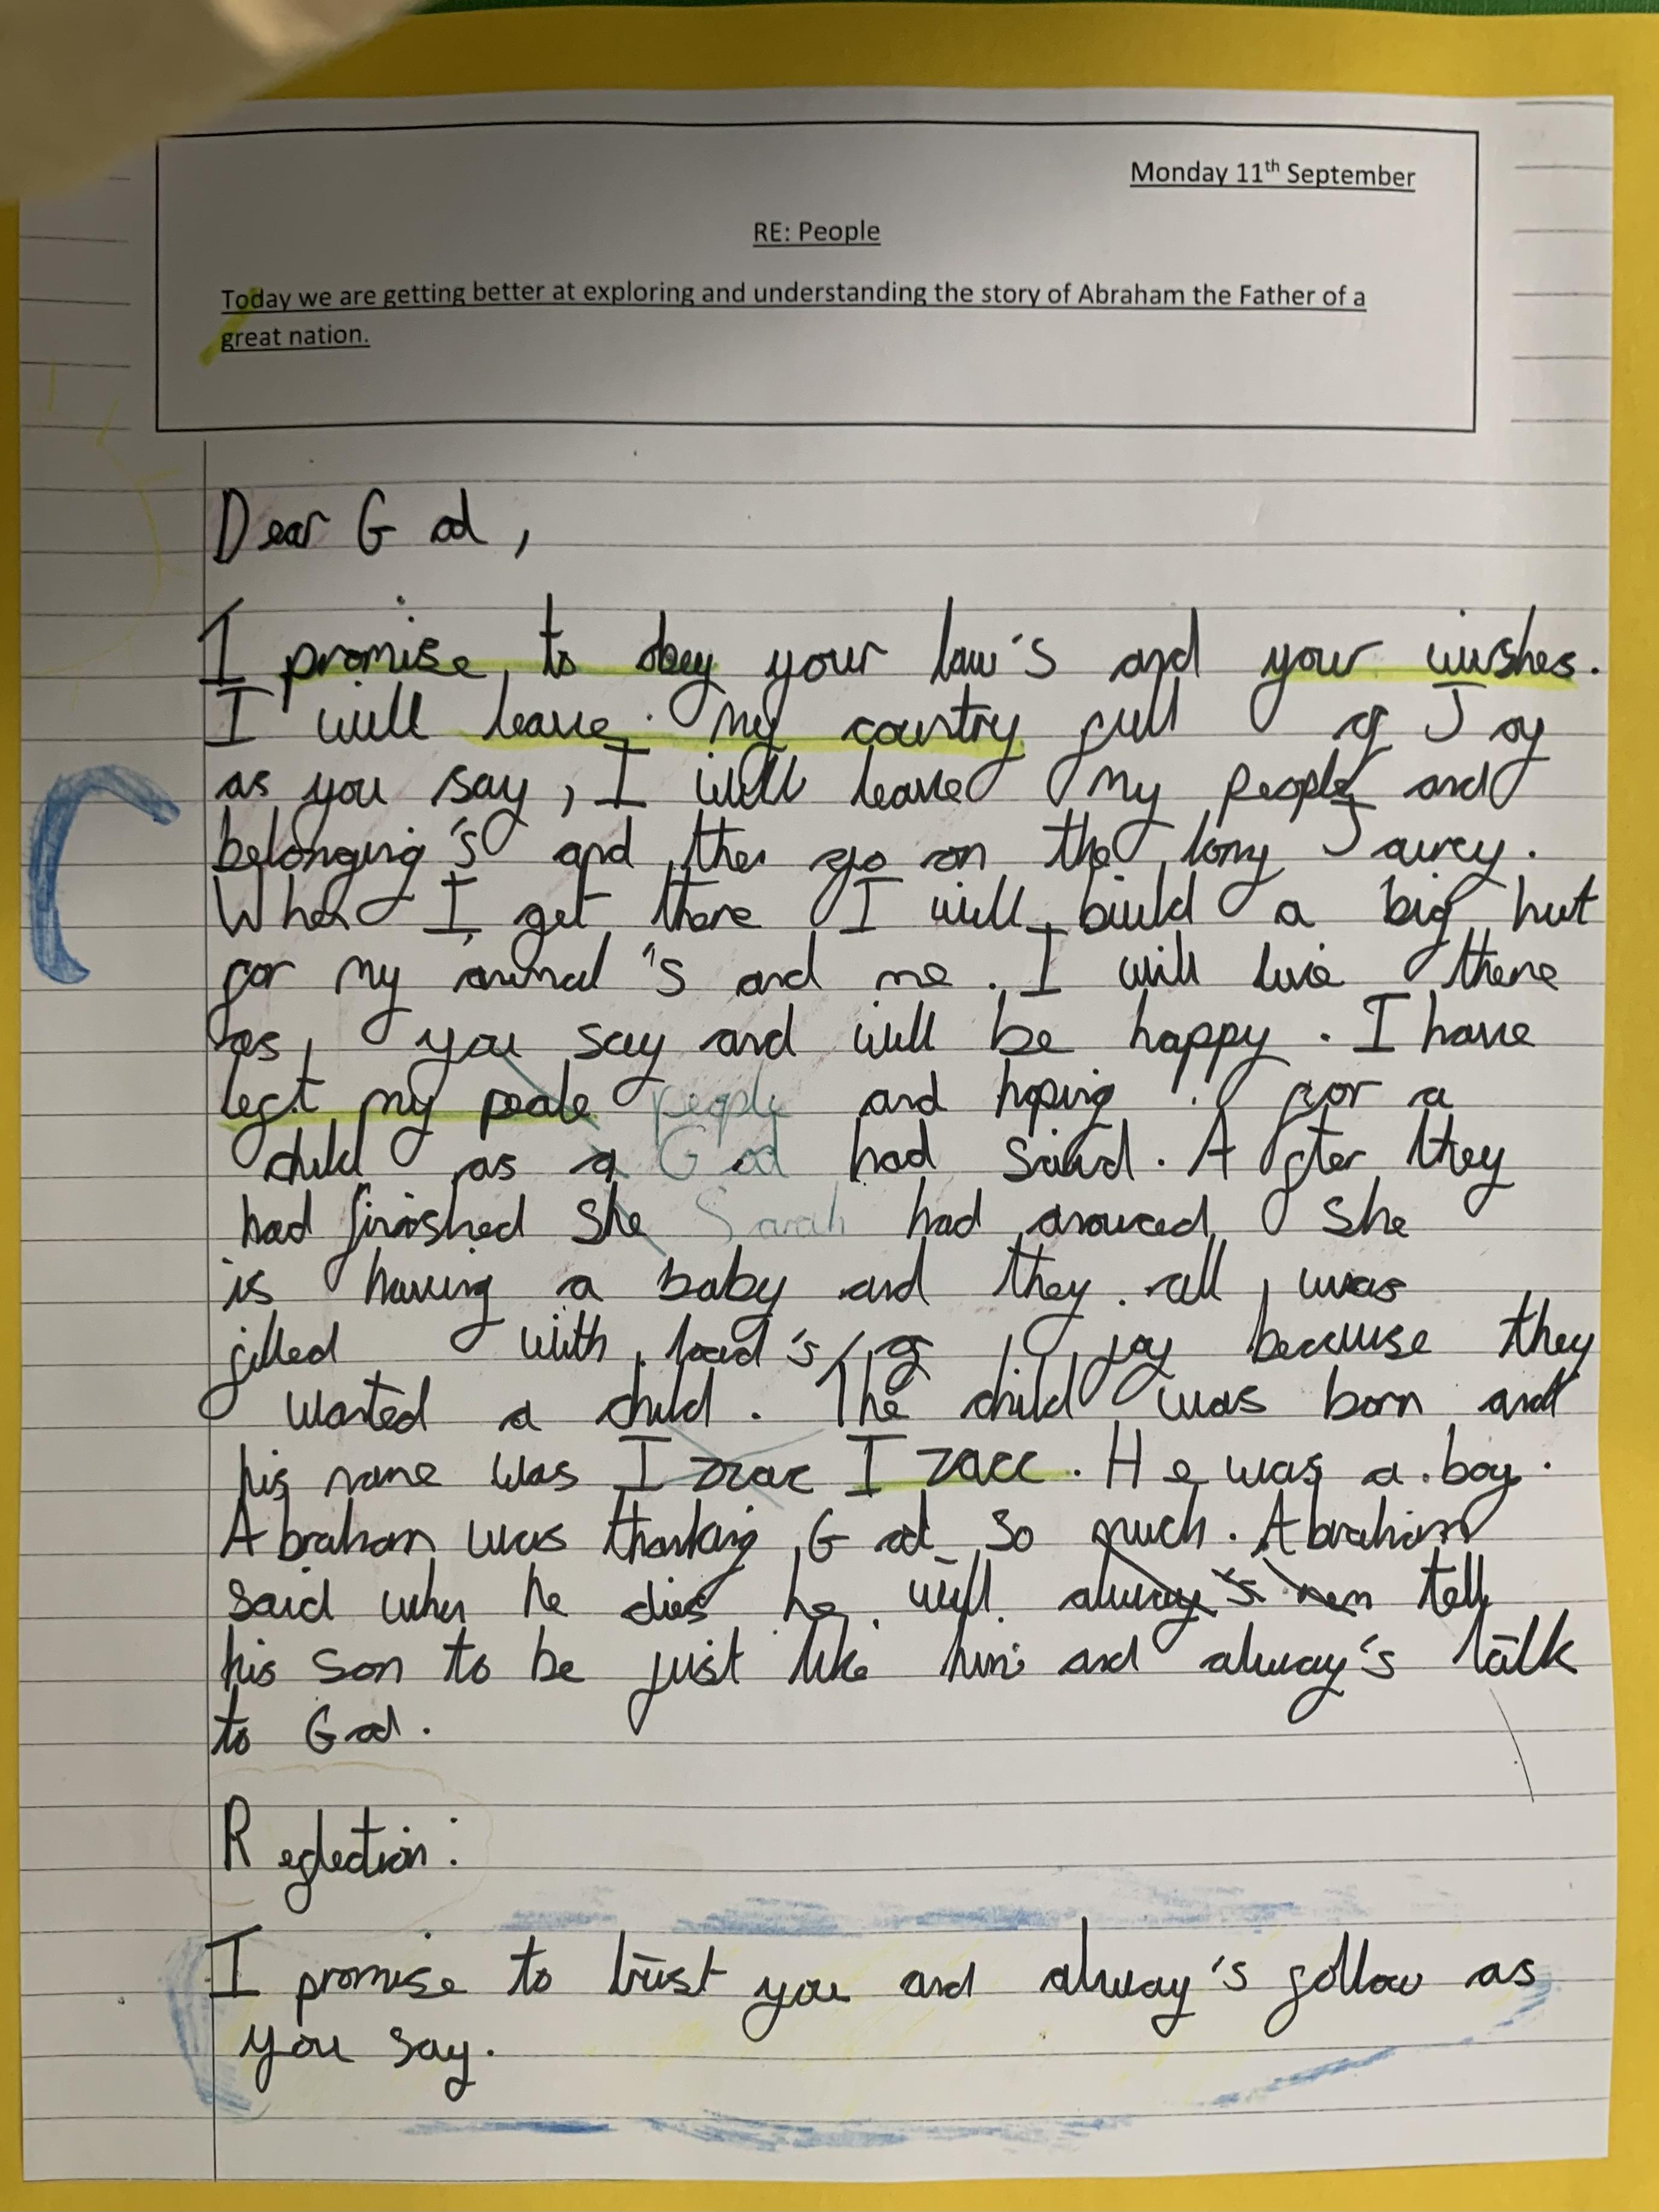 Monday 11th September
RE: People
Today we are getting better at exploring and understanding the story of Abraham the Father of a
great nation.
Dear God,
I promise to obey your law's and your wishes.
I will leave my country full of Joy
as you say, I will leave my people and
belonging's and then go on the long
When I get there I will build a big hut
for my animal's and me. I will live there
as you say and will be happy. I have
left my peale people and hoping for a
child as a God had said. After they
had finished she Sarah had she
is having a baby and they all was
filled with load's of joy because they
wanted a child. The child was born and
his name was Izacc. He was a boy.
Abraham was thanking God so much. Abraham
said when he dies he will always's rem tell
his son to be just like him and alway's talk
to God.
Reflection:
I promise to trust you and alway's follow as
you say.